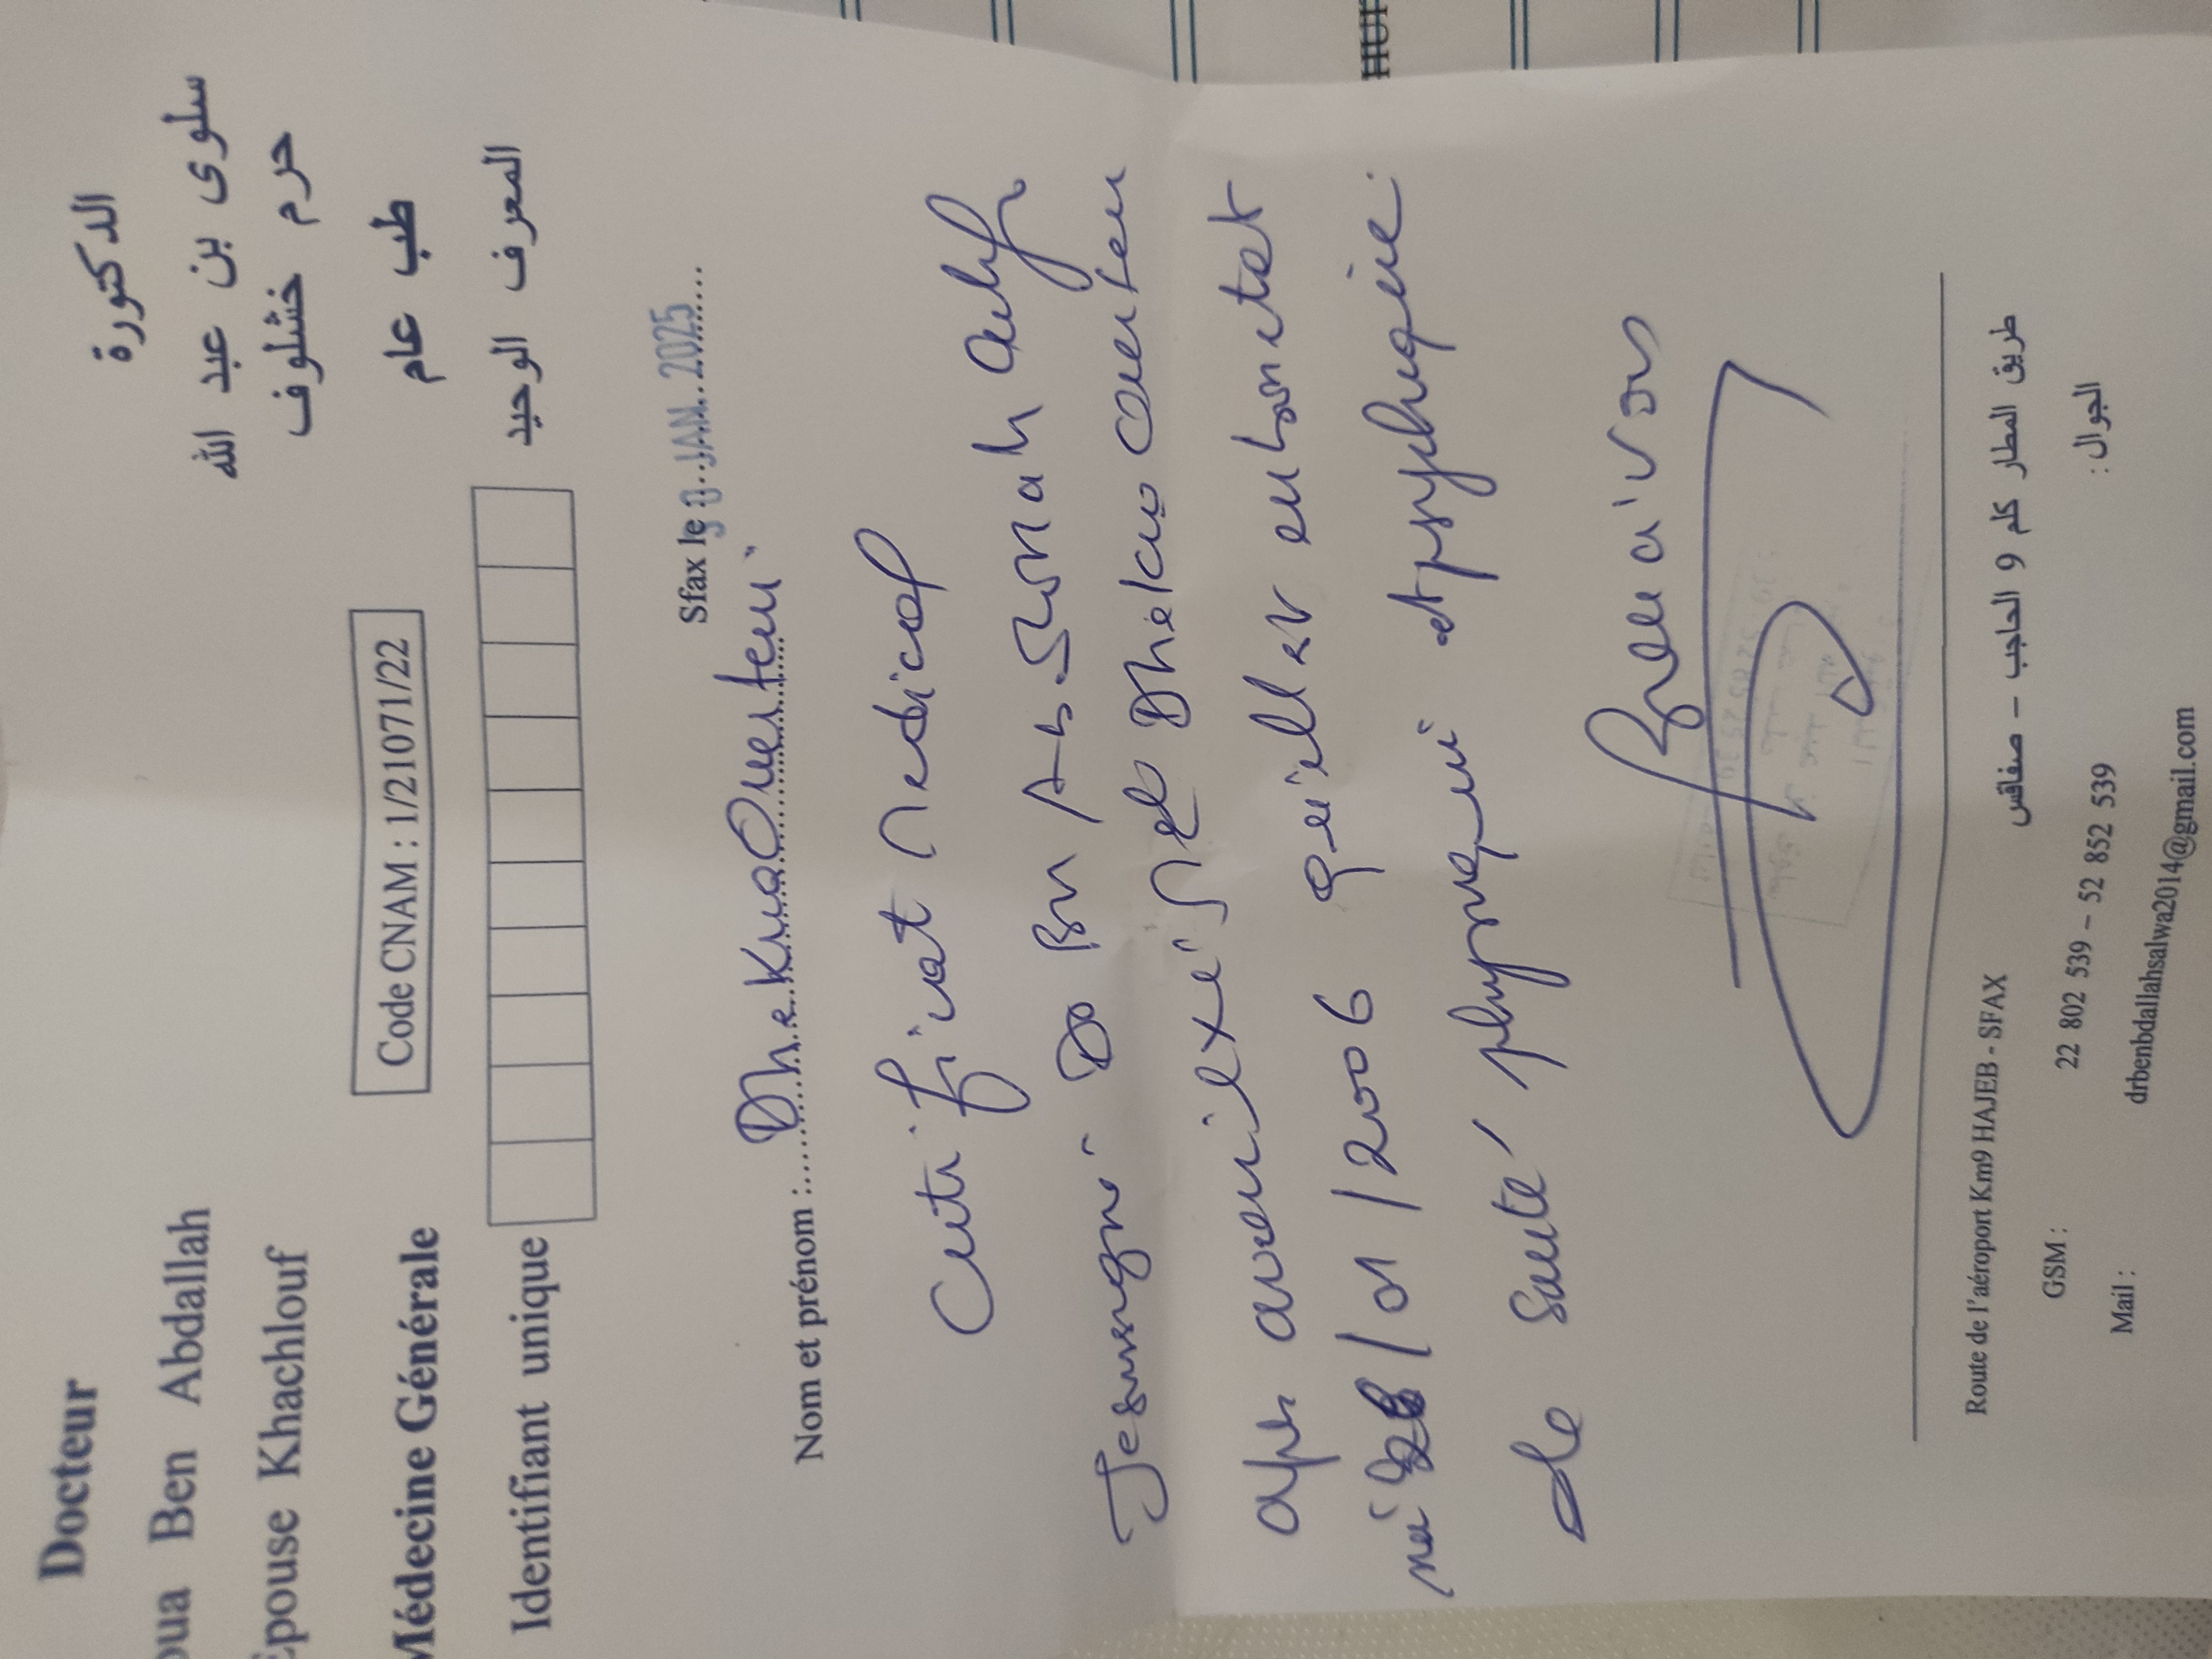 Docteur
oua Ben Abdallah
Epouse Khachlouf
Médecine Générale
الدكتورة
سلوى بن عبد الله
حرم خشلوف
طب عام
Code CNAM : 1/21071/22
Identifiant unique
المعرف الوحيد
Sfax le JAN. 2025
Nom et prénom : Dhekra Ouesleti
Certificat Medical
Je soussigné Dr Ben Abdallah
avoir examiné Melle Dhekra
né 28/01/2006 qu'elle est en bon etat
de Santé physique et psychique
Route de l'aéroport Km9 HAJEB - SFAX
طريق المطار كلم 9 الحاجب – صفاقس
GSM : 22 802 539 – 52 852 539 الجوال :
Mail : drbenbdallahsalwa2014@gmail.com